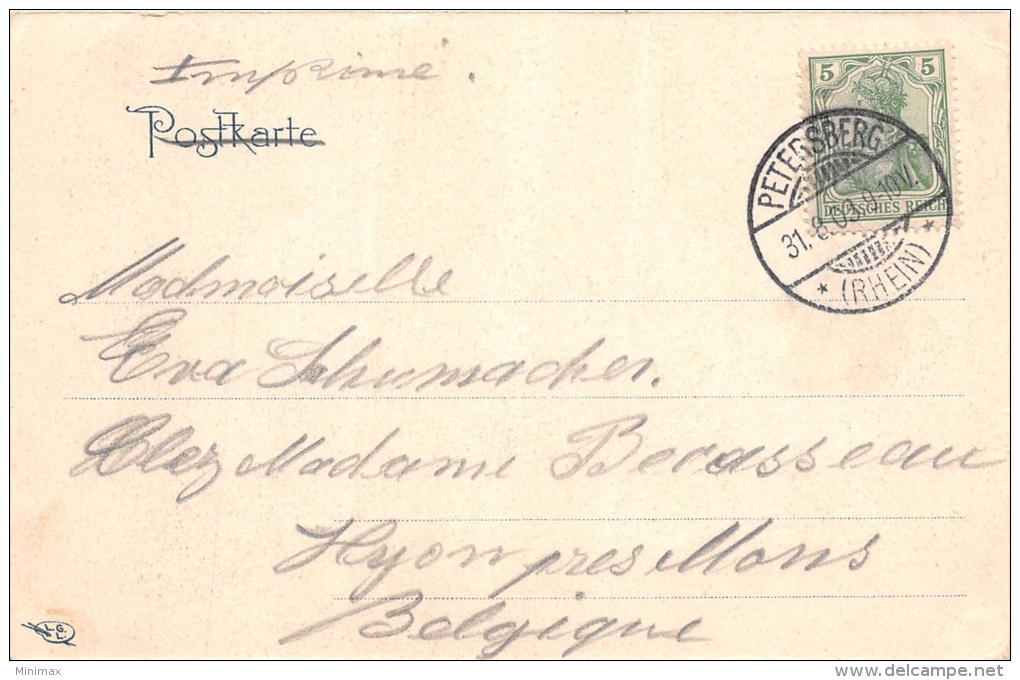 Imprimé.
Postkarte
5 5
DEUTSCHES REICH
PETERSBERG
31. 8 09. 9-10 V.
* (RHEIN) *
Madmoiselle
Eva Schumacher.
Chez Madame Becasseau
Hyon pres Mons
Belgique
L.G.
L.
Minimax
delcampe.net